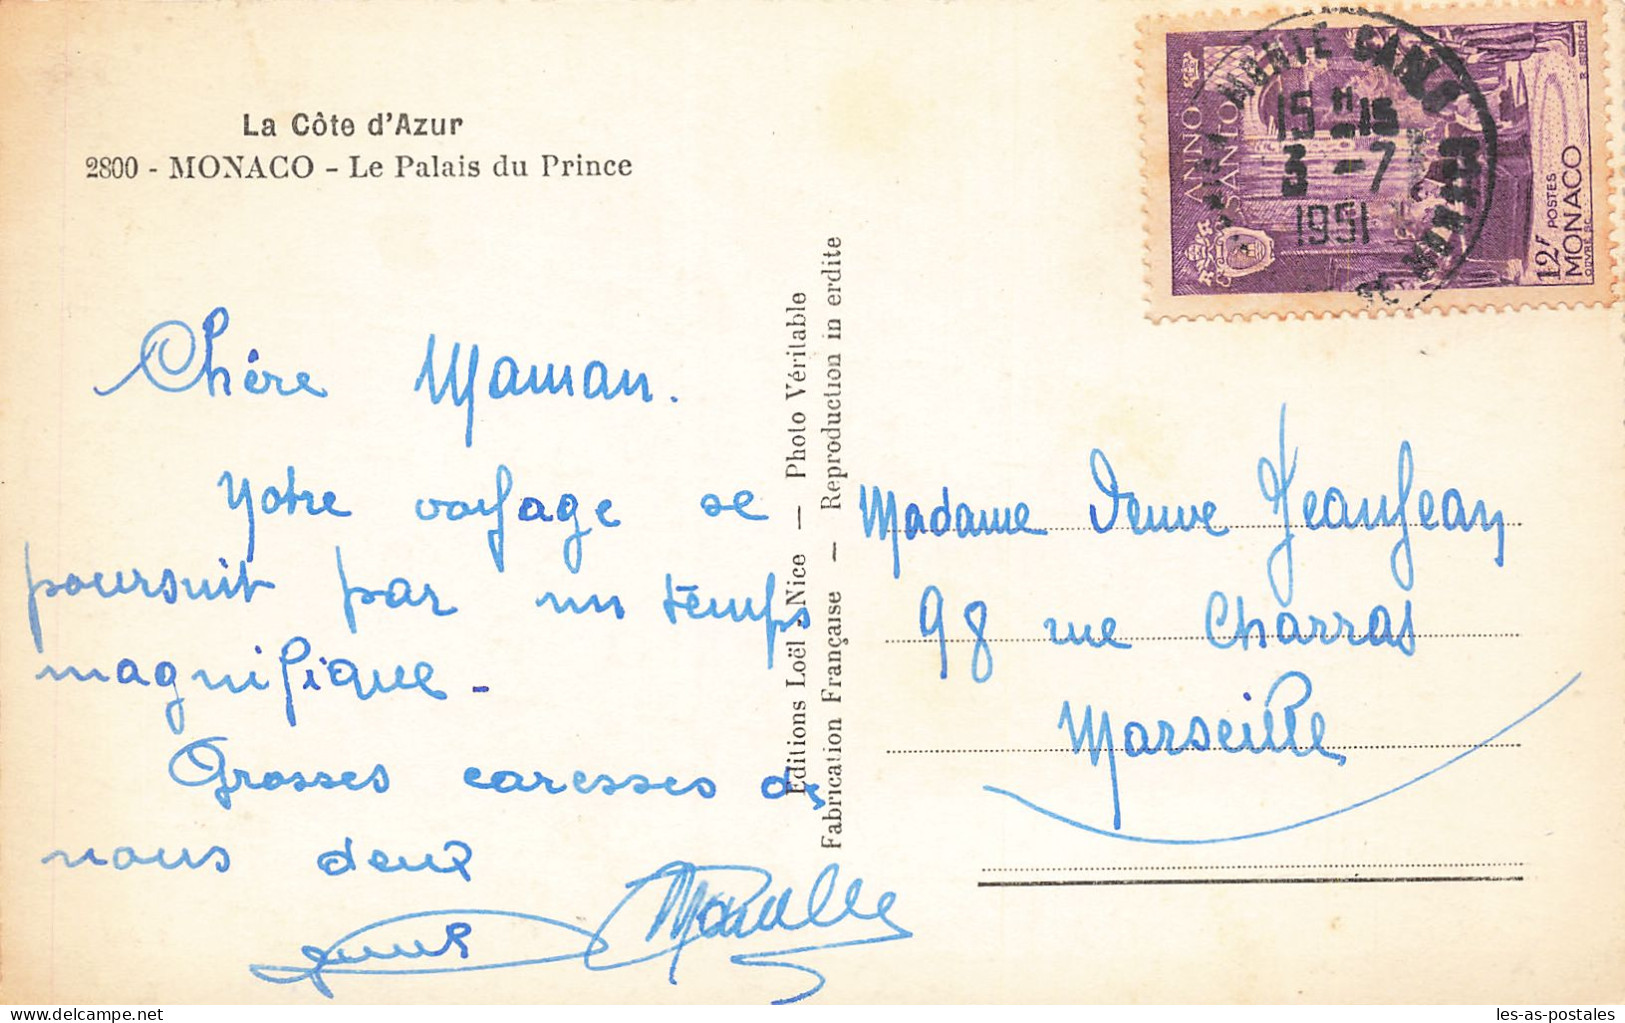 La Côte d'Azur
2800 - MONACO - Le Palais du Prince
Chère Maman.
Notre voyage se
poursuit par un temps
magnifique.
Grosses caresses de
nous deux
Editions Loël - Nice — Photo Véritable
Fabrication Française — Reproduction interdite
MONTE CARLO
15 H 15
3 - 7
1951
ANNO
SANTO
12F POSTES
MONACO
Madame Veuve Jeanjean
98 rue Charras
Marseille
les-as-postales